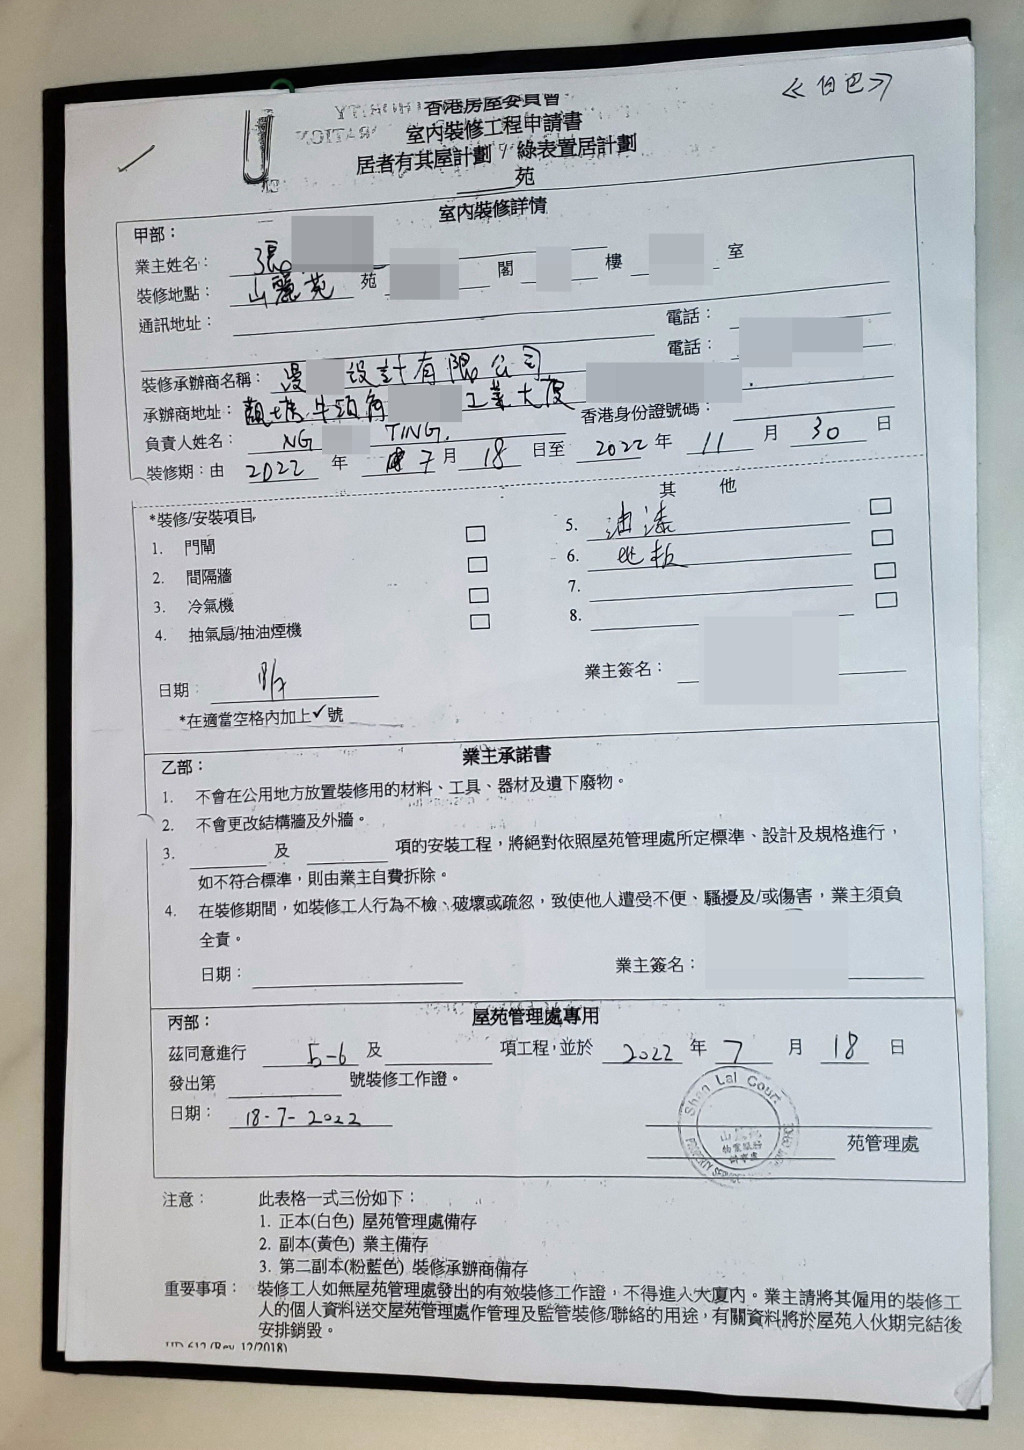 《伯巴》
香港房屋委員會
室內裝修工程申請書
居者有其屋計劃 / 綠表置居計劃
苑
室內裝修詳情
甲部：
業主姓名： 張
裝修地點： 山麗苑 苑 閣 樓 室
通訊地址： 電話：
電話：
裝修承辦商名稱： 設計有限公司
承辦商地址： 觀塘牛頭角 工業大廈
負責人姓名： NG TING. 香港身份證號碼：
裝修期：由 2022 年 7 月 18 日至 2022 年 11 月 30 日
*裝修/安裝項目 其 他
1. 門閘 5. 油漆
2. 間隔牆 6. 地板
3. 冷氣機 7.
4. 抽氣扇/抽油煙機 8.
日期： 業主簽名：
*在適當空格內加上✓號
乙部： 業主承諾書
1. 不會在公用地方放置裝修用的材料、工具、器材及遺下廢物。
2. 不會更改結構牆及外牆。
3. 及 項的安裝工程，將絕對依照屋苑管理處所定標準、設計及規格進行，
如不符合標準，則由業主自費拆除。
4. 在裝修期間，如裝修工人行為不檢、破壞或疏忽，致使他人遭受不便、騷擾及/或傷害，業主須負
全責。
日期： 業主簽名：
丙部： 屋苑管理處專用
茲同意進行 5-6 及 項工程，並於 2022 年 7 月 18 日
發出第 號裝修工作證。
日期： 18-7-2022
Shan Lai Court
苑管理處
注意： 此表格一式三份如下：
1. 正本(白色) 屋苑管理處備存
2. 副本(黃色) 業主備存
3. 第二副本(粉藍色) 裝修承辦商備存
重要事項： 裝修工人如無屋苑管理處發出的有效裝修工作證，不得進入大廈內。業主請將其僱用的裝修工
人的個人資料送交屋苑管理處作管理及監管裝修/聯絡的用途，有關資料將於屋苑入伙期完結後
安排銷毀。
HD 612 (Rev. 12/2018)